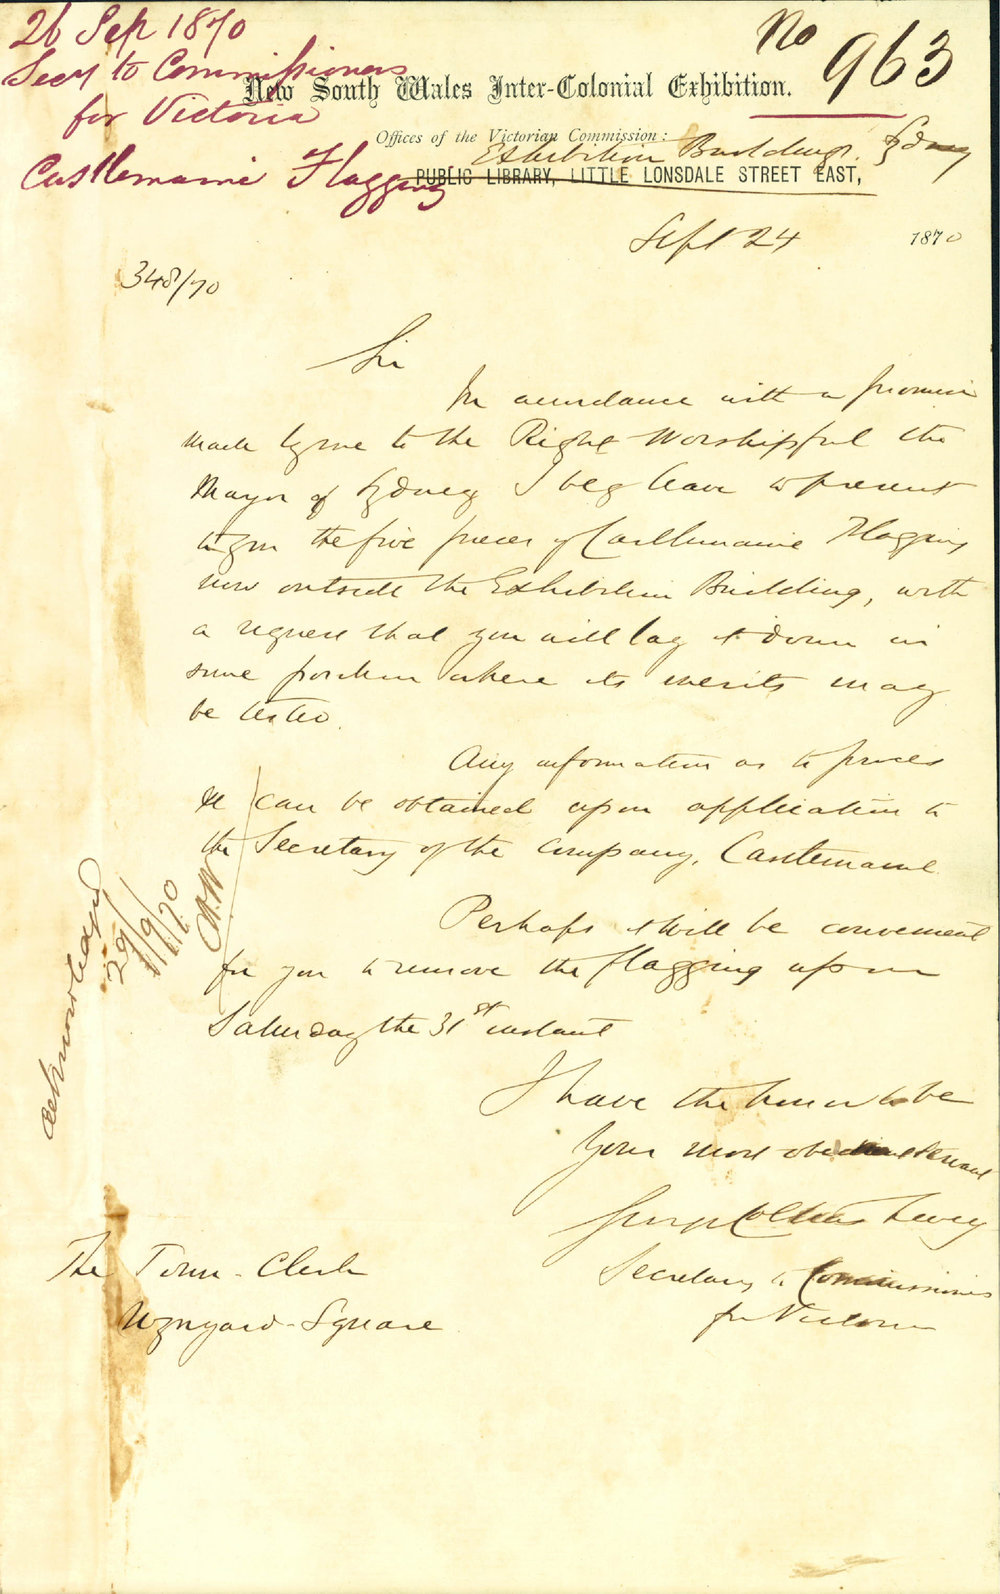 26 Sep 1870
Secy to Commissioners
for Victoria
Castlemaine Flagging
No 963
New South Wales Inter-Colonial Exhibition.
Offices of the Victorian Commission:
Exhibition Buildings. Sydney
PUBLIC LIBRARY, LITTLE LONSDALE STREET EAST,
Sept 24 1870
348/70
Sir
In accordance with a promise
made by me to the Right Worshipful the
Mayor of Sydney I beg leave to present
to you the five pieces of Castlemaine Flagging
now outside the Exhibition Building, with
a request that you will lay it down in
some position where its merits may
be tested.
Any information as to prices
&c can be obtained upon application to
the Secretary of the Company, Castlemaine
Perhaps it will be convenient
for you to remove the flagging upon
Saturday the 31st instant
I have the honor to be
Your most obedient Servant
George Collins Levey
Secretary to Commissioners
for Victoria
The Town-Clerk
Wynyard-Square
Acknowledged
29/9/70